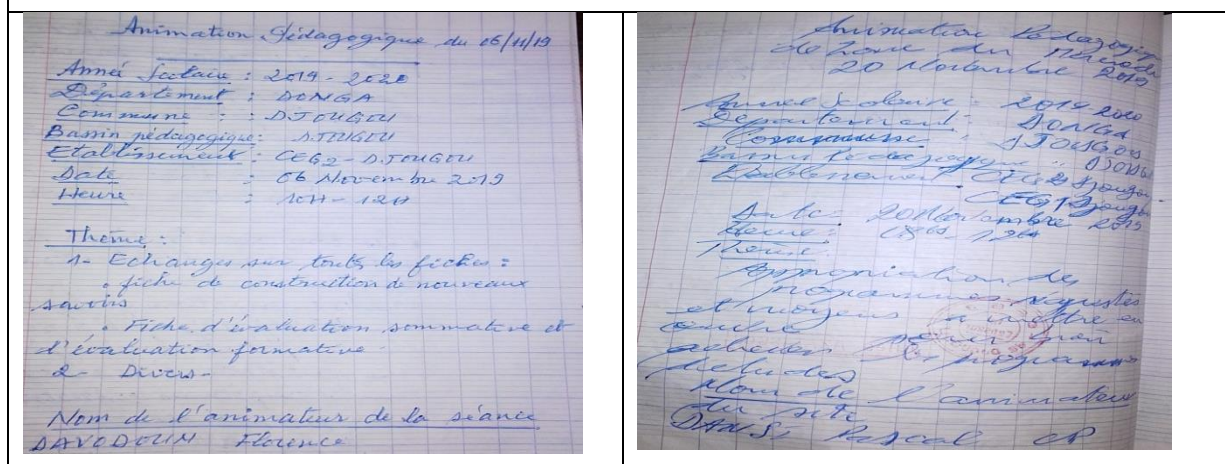 Animation Pédagogique du 06/11/19
Année Scolaire : 2019 - 2020
Département : DONGA
Commune : DJOUGOU
Bassin pédagogique : DJOUGOU
Etablissement : CEG2 - DJOUGOU
Date : 06 Novembre 2019
Heure : 10H - 12H
Thème :
1- Echanges sur toutes les fiches :
• fiche de construction de nouveaux
savoirs
• Fiche d'évaluation sommative et
d'évaluation formative.
2- Divers-
Nom de l'animateur de la séance
DAVODOUN Florence
Animation Pédagogique
de Zone du Mercredi
20 Novembre 2019
Année Scolaire : 2019 2020
Département : DONGA
Commune : DJOUGOU
Bassin Pédagogique : DJOUGOU
Etablissement : CEG2 Djougou
CEG1 Djougou
Date : 20 Novembre 2019
Heure : 12H
Thème :
Appropriation des
programmes réajustés
et moyens à mettre en
œuvre pour
achever programmes
d'études
Nom de l'animateur
du site
DANSI Pascal CP